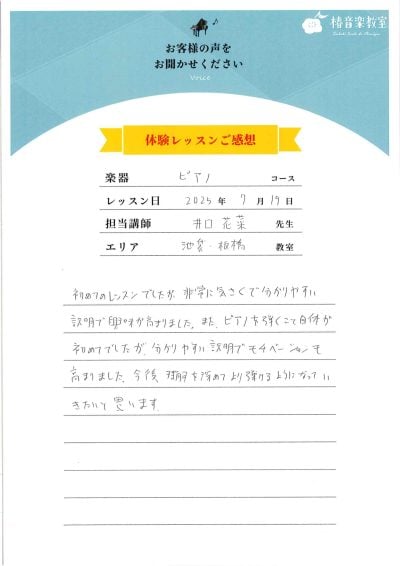 椿音楽教室
お客様の声を
お聞かせください
Voice
体験レッスンご感想
楽器 ピアノ コース
レッスン日 2025 年 7 月 19 日
担当講師 井口 花菜 先生
エリア 池袋・板橋 教室
初めてのレッスンでしたが、非常に気さくで分かりやすい
説明で意欲が高まりました。また、ピアノを弾くこと自体が
初めてでしたが、分かりやすい説明でモチベーションも
高まりました。今後、理解を深めてより弾けるようになってい
きたいと思います